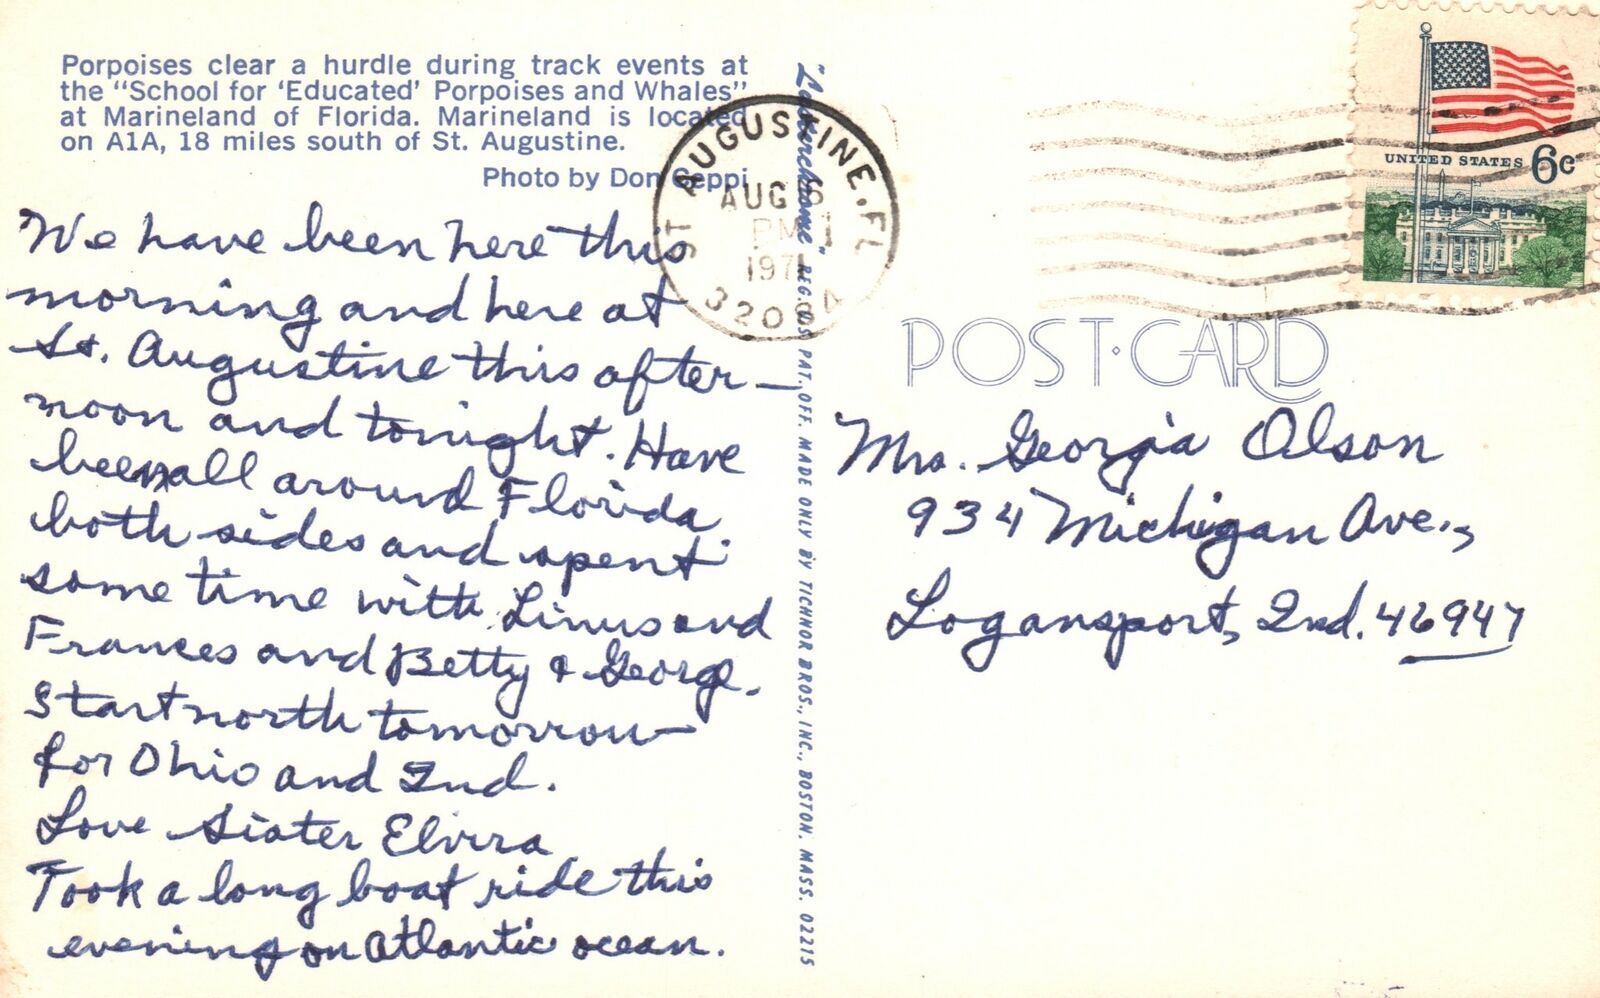 Porpoises clear a hurdle during track events at
the "School for 'Educated' Porpoises and Whales"
at Marineland of Florida. Marineland is located
on A1A, 18 miles south of St. Augustine.
Photo by Don Seppi
We have been here this
morning and here at
St. Augustine this after-
noon and tonight. Have
been all around Florida
both sides and spent
some time with Linus and
Frances and Betty & George.
Start north tomorrow
for Ohio and Ind.
Love Sister Elvira
Took a long boat ride this
evening on Atlantic ocean.
"Lusterchrome" REG. U.S. PAT. OFF. MADE ONLY BY TICHNOR BROS., INC., BOSTON, MASS. 02215
ST AUGUSTINE, FL
AUG
PM
197
UNITED STATES 6c
POST·CARD
Mrs. Georgia Olson
934 Michigan Ave.,
Logansport, Ind. 46947